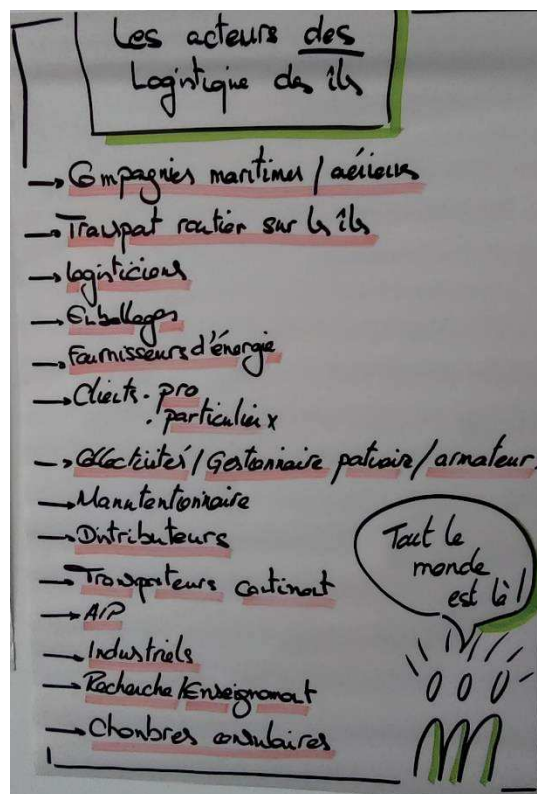 Les acteurs des
Logistique des îles
→ Compagnies maritimes / aériennes
→ Transport routier sur les îles
→ logisticiens
→ Emballages
→ Fournisseurs d'énergie
→ Clients · pro
· particulier x
→ Collectivités / Gestionnaire portuaire / armateur
→ Manutentionnaire
→ Distributeurs
→ Transporteurs continent
→ AIP
→ Industriels
→ Recherche / Enseignement
→ Chambres consulaires
Tout le
monde
est là !